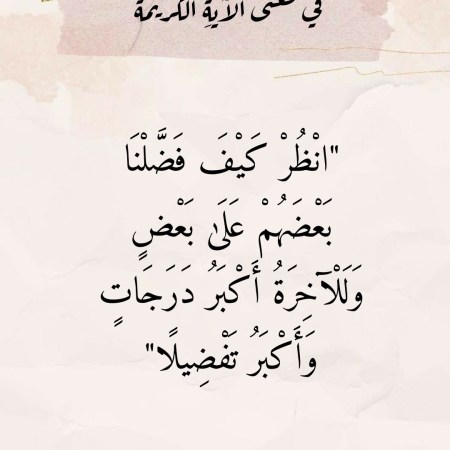 في معنى الآيةِ الكريمة
"انْظُرْ كَيْفَ فَضَّلْنَا
بَعْضَهُمْ عَلَىٰ بَعْضٍ
وَلَلْآخِرَةُ أَكْبَرُ دَرَجَاتٍ
وَأَكْبَرُ تَفْضِيلًا"